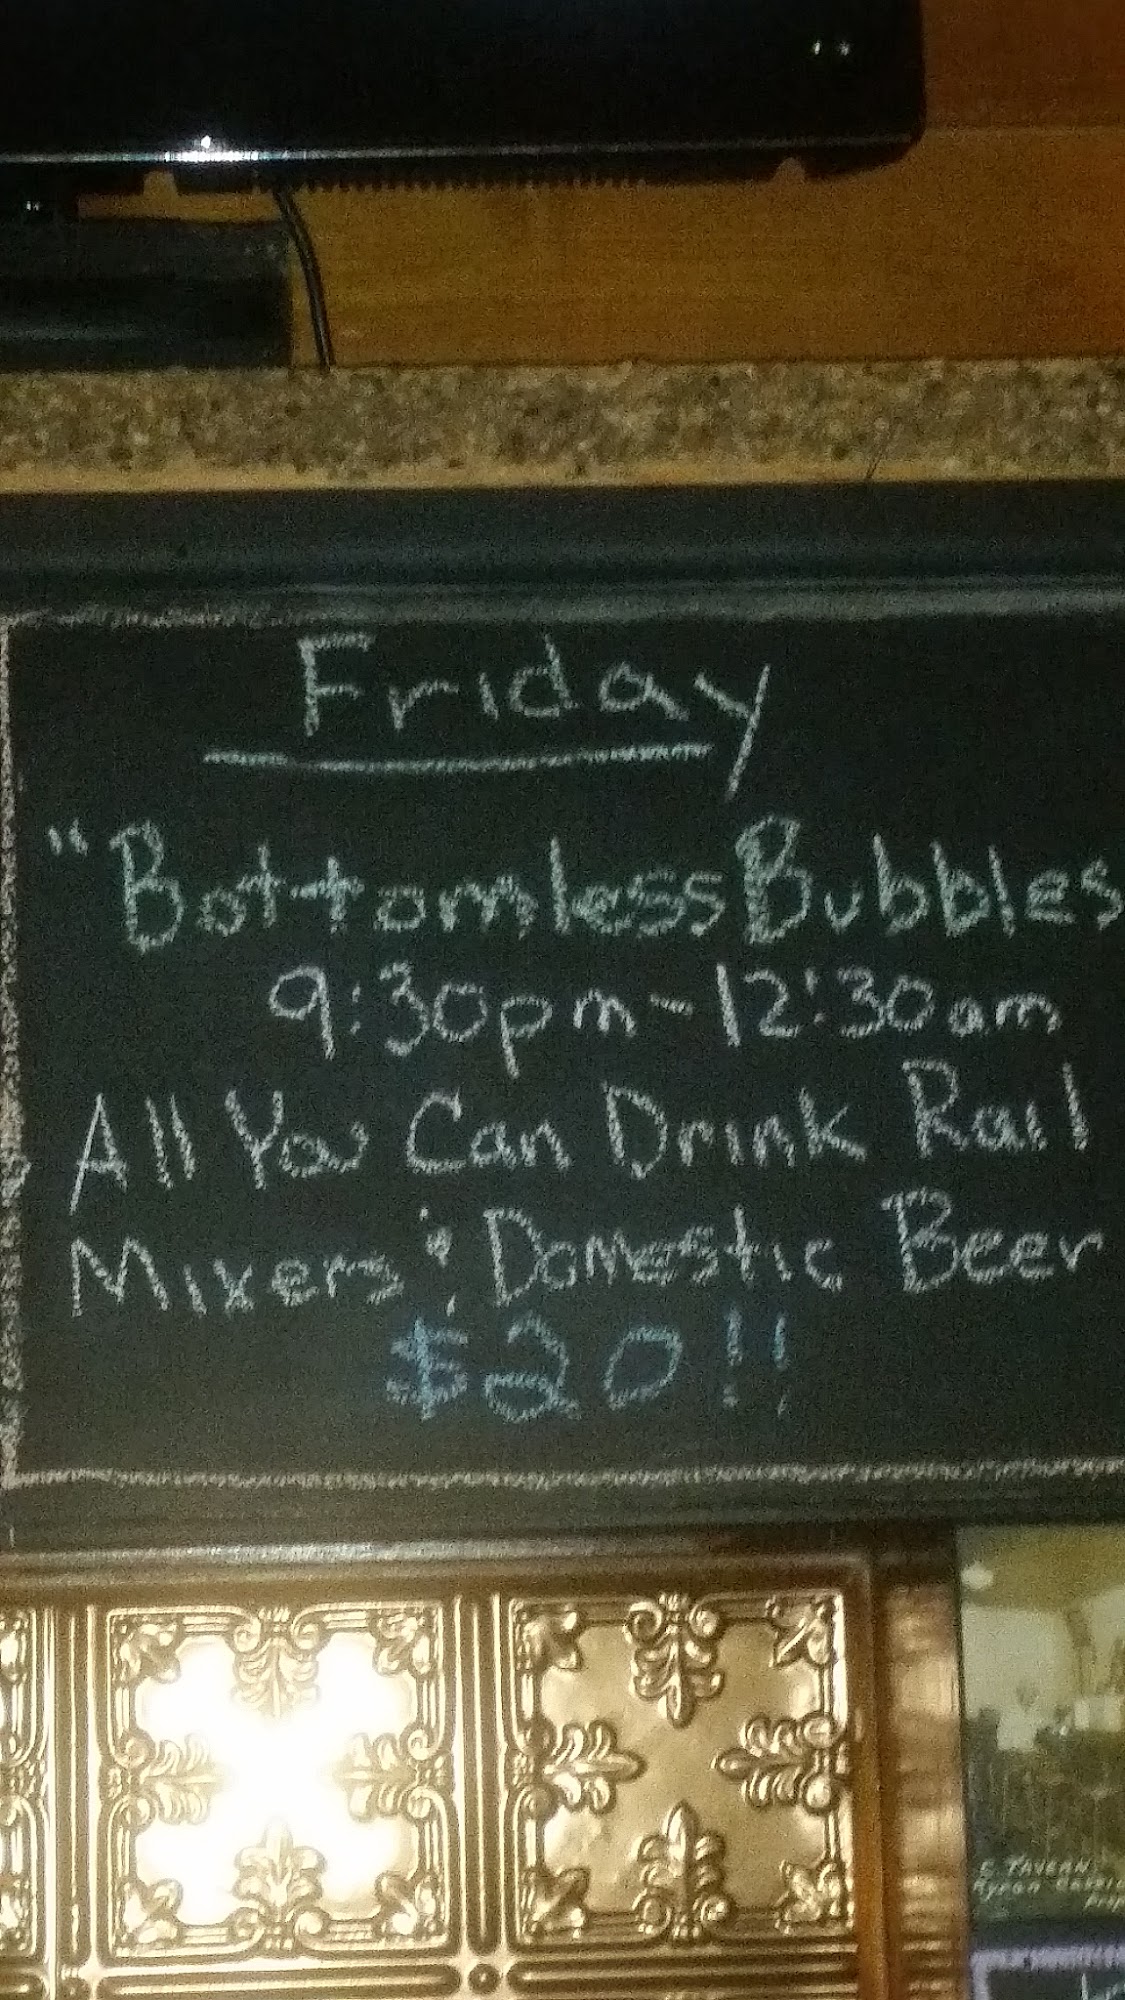 Friday
"Bottomless Bubbles
9:30pm-12:30am
All You Can Drink Rail
Mixers & Domestic Beer
$20!!
S. TAVERN